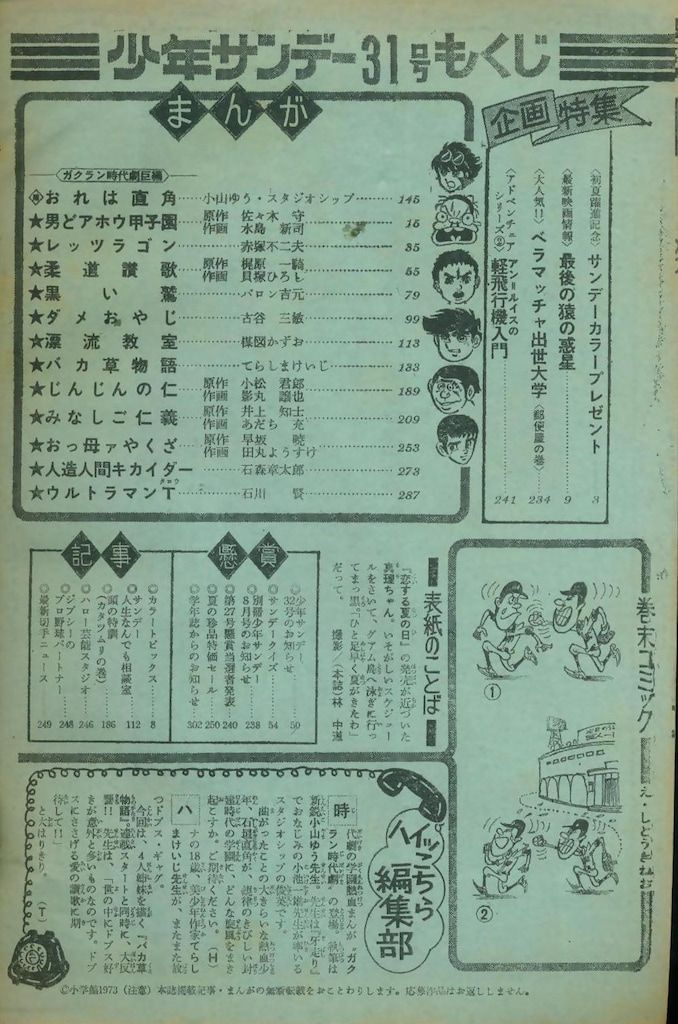 少年サンデー31号もくじ
まんが
ガクラン時代劇巨編
おれは直角 小山ゆう・スタジオシップ 145
★男どアホウ甲子園 原作 佐々木 守 作画 水島 新司 15
★レッツラゴン 赤塚不二夫 35
★柔道讃歌 原作 梶原 一騎 作画 貝塚ひろし 55
★黒い鷲 バロン吉元 79
★ダメおやじ 古谷 三敏 99
★漂流教室 楳図かずお 113
★バカ草物語 てらしまけいじ 133
★じんじんの仁 原作 小松 君郎 作画 影丸 譲也 189
★みなしご仁義 原作 井上 知士 作画 あだち 充 209
★おっ母ァやくざ 原作 早坂 暁 作画 田丸ようすけ 253
★人造人間キカイダー 石森章太郎 273
★ウルトラマンT タロウ 石川 賢 287
企画特集
〈初夏躍進記念〉サンデーカラープレゼント 3
〈最新映画情報〉最後の猿の惑星 9
〈大人気!!〉ベラマッチャ出世大学〈郵便屋の巻〉 234
〈アドベンチュアシリーズ②〉アン=ルイスの軽飛行機入門 241
懸賞
少年サンデー32号のお知らせ 50
サンデークイズ 54
別冊少年サンデー8月号のお知らせ 238
第27号懸賞当選者発表 240
夏の珍品特価セール 250
学年誌からのお知らせ 302
記事
カラートピックス 8
サンデー人生なんでも相談室 112
頭の特訓(カタツムリの巻) 186
ハロー芸能スタジオ 246
ジプシーのプロ野球パートナー 248
最新切手ニュース 249
表紙のことば
『恋する夏の日』の発売が近づいた
真理ちゃん。いそがしいスケジュー
ルをさいて、グアム島へ泳ぎに行っ
てまっ黒。「ひと足早く夏がきたわ」
だって。 撮影/(本誌)林 中道
巻末コミック
え・しとうきねお
①
②
ハイッこちら編集部
時代劇の学園熱血まんが、“ガク
ラン時代劇”の登場。執筆は
新鋭小山ゆう先生。先生は『牙走り』
でおなじみの小池一雄先生が率いる
スタジオシップの俊英です。
曲がったことの大きらいな熱血少
年、石垣直角が、規律のきびしい封
建時代の学園に、どんな旋風をまき
起こすか。ご期待ください。(H)
ハナの18歳、美少年作家てらし
まけいじ先生が、またまた放
つドブス・ギャグ。
今回は、4人姉妹を描く『バカ草
物語』。連載スタートと同時に、大反
響!!先生は、「世の中にドブス好
きが意外と多いものなのです。ドブ
スにささげる愛の讃歌に期
待して!!」
と大はりきり。(T)
©小学館1973 (注意) 本誌掲載記事・まんがの無断転載をおことわりします。応募作品はお返ししません。